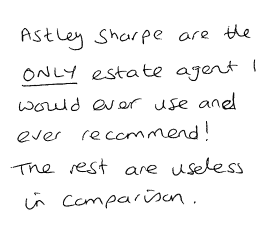 Astley Sharpe are the
ONLY estate agent I
would ever use and
ever recommend!
The rest are useless
in comparison.